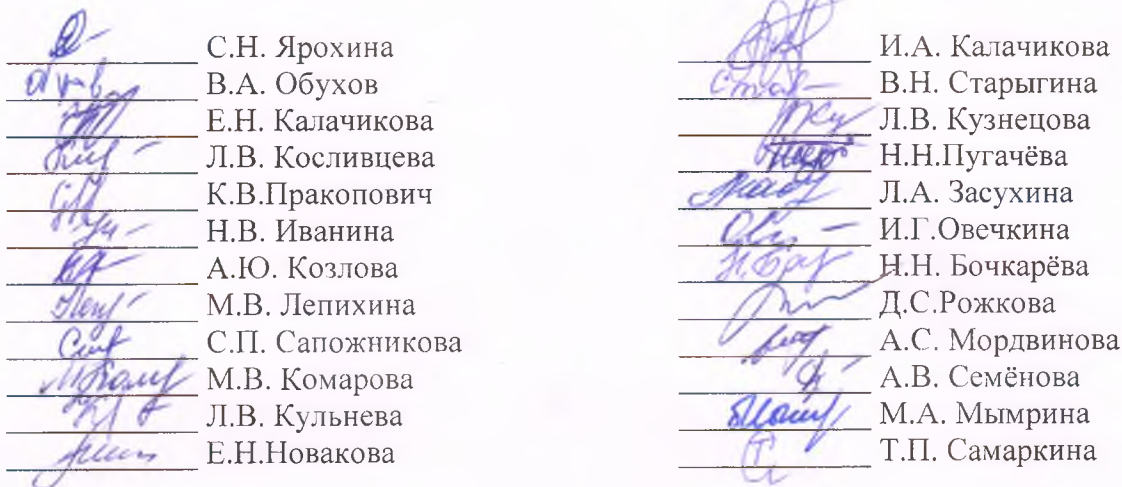 С.Н. Ярохина
В.А. Обухов
Е.Н. Калачикова
Л.В. Косливцева
К.В.Пракопович
Н.В. Иванина
А.Ю. Козлова
М.В. Лепихина
С.П. Сапожникова
М.В. Комарова
Л.В. Кульнева
Е.Н.Новакова
И.А. Калачикова
В.Н. Старыгина
Л.В. Кузнецова
Н.Н.Пугачёва
Л.А. Засухина
И.Г.Овечкина
Н.Н. Бочкарёва
Д.С.Рожкова
А.С. Мордвинова
А.В. Семёнова
М.А. Мымрина
Т.П. Самаркина